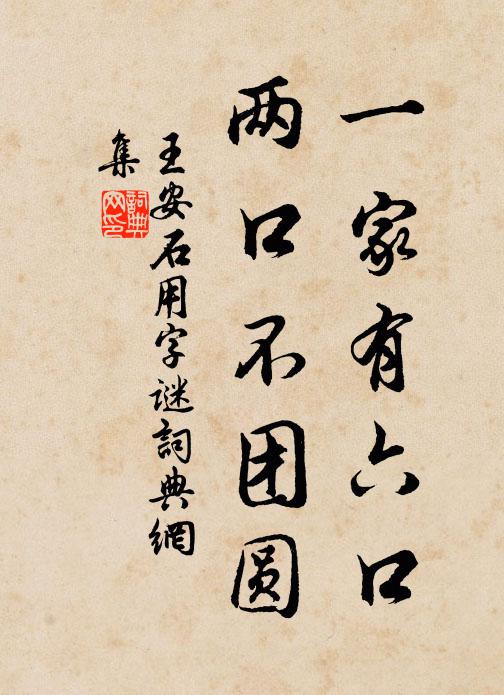 一家有六口
两口不团圆
王安石用字谜詞典網
集
詞典
网印